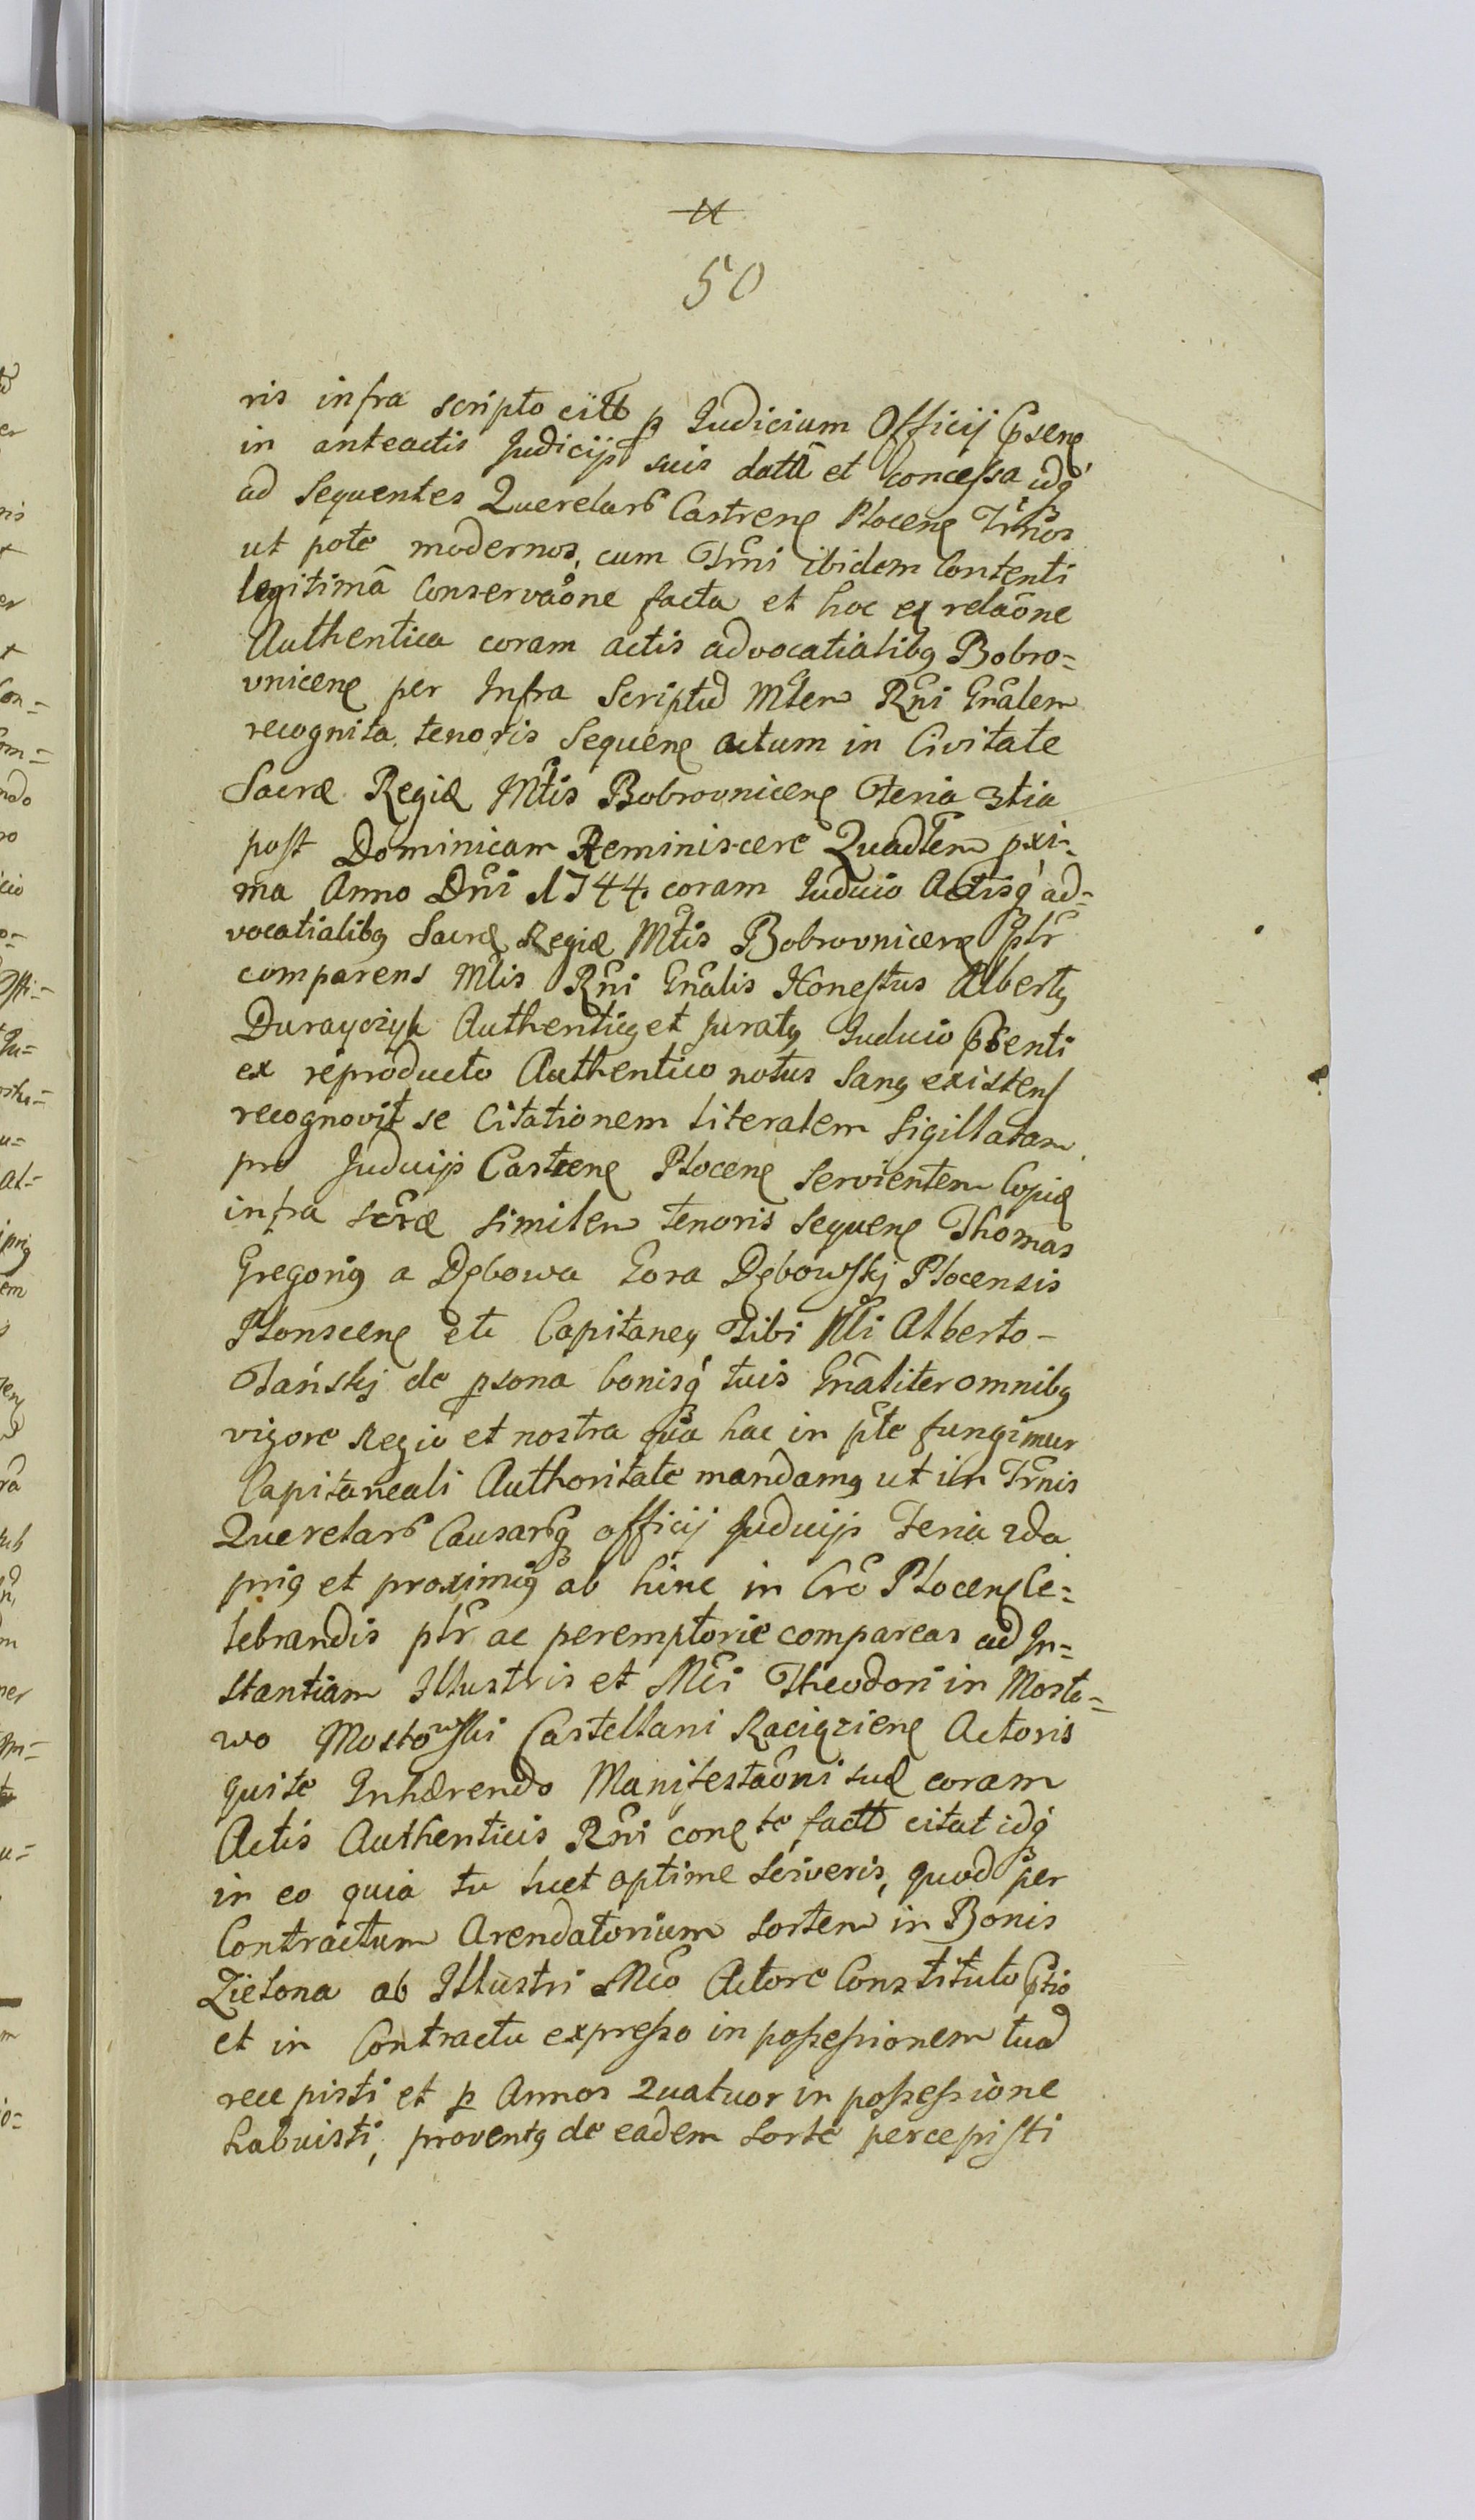 50
ris infra scripto citt p Judicium Officij Psene
in anteactis Judicijs suis datâ et concessa idq́
ad Sequentes Querelarỏ Castrene Plocene Trn̄os
ut pote modernos, cum Trn̄i ibidem Contenti
legitimâ Conservãone facta et hoc ex relãone
Authentica coram actis advocatialibꝯ Bobro=
vnicene per Infra Scriptũ Mlem Rn̄i Gn̄alem
recognita tenoris Sequene actum in Civitate
Sacræ Regiæ Mtis Bobrovnicene Feria 3tia
post Dominicam Reminiscere Quadlem pxi=
ma Anno Dn̄i 1744. coram Judicio Actisq́ ad=
vocatialibꝯ Sacræ Regiæ Mtis Bobrovnicene plr
comparens Mlis Rn̄i Gn̄alis Honestus Albertꝯ
Durayczyk Authenticꝯ et juratꝯ Judicio Psenti
ex reproducto Authentico notus Sanꝯ existens
recognovit se Citationem literalem Sigillatam
pro Judicijs Castrene Plocene Servientem Copiæ
infra scræ similem tenoris Sequene Thomas
Gregoriꝯ a Dębowa Gora Dębowskj Plocensis
Plonscene etc Capitaneꝯ Tibi Nli Alberto
Tańskj de psona bonisq́ tuis Gn̄aliter omnibꝯ
vigore Regio et nostra qua hac in pte fungimur
Capitaneali Authoritate mandamꝯ ut in Trn̄is
Querelarỏ Causarỏq officij Judicijs Feria 2da
priꝯ et proximiꝯ ab hinc in Cro Plocene Ce=
lebrandis plr ac peremptorie compareas ad In=
stantiam Illustris et Mci Theodori in Mosto=
wo Mostowski Castellani Raciąziene Actoris
qui te Inhærendo Manifestãoni suæ coram
Actis Authenticis Rn̄i cone te factæ citat idq́
in eo quia tu licet optime Sciveris, quod per
Contractum Arendatorium sortem in Bonis
Zielona ab Illustri Mco Actore Constituto Ptio
et in Contractu expresso in possessionem tuã
recepisti et p Annos Quatuor in possessione
habuisti, proventꝯ de eadem Sorte percepisti